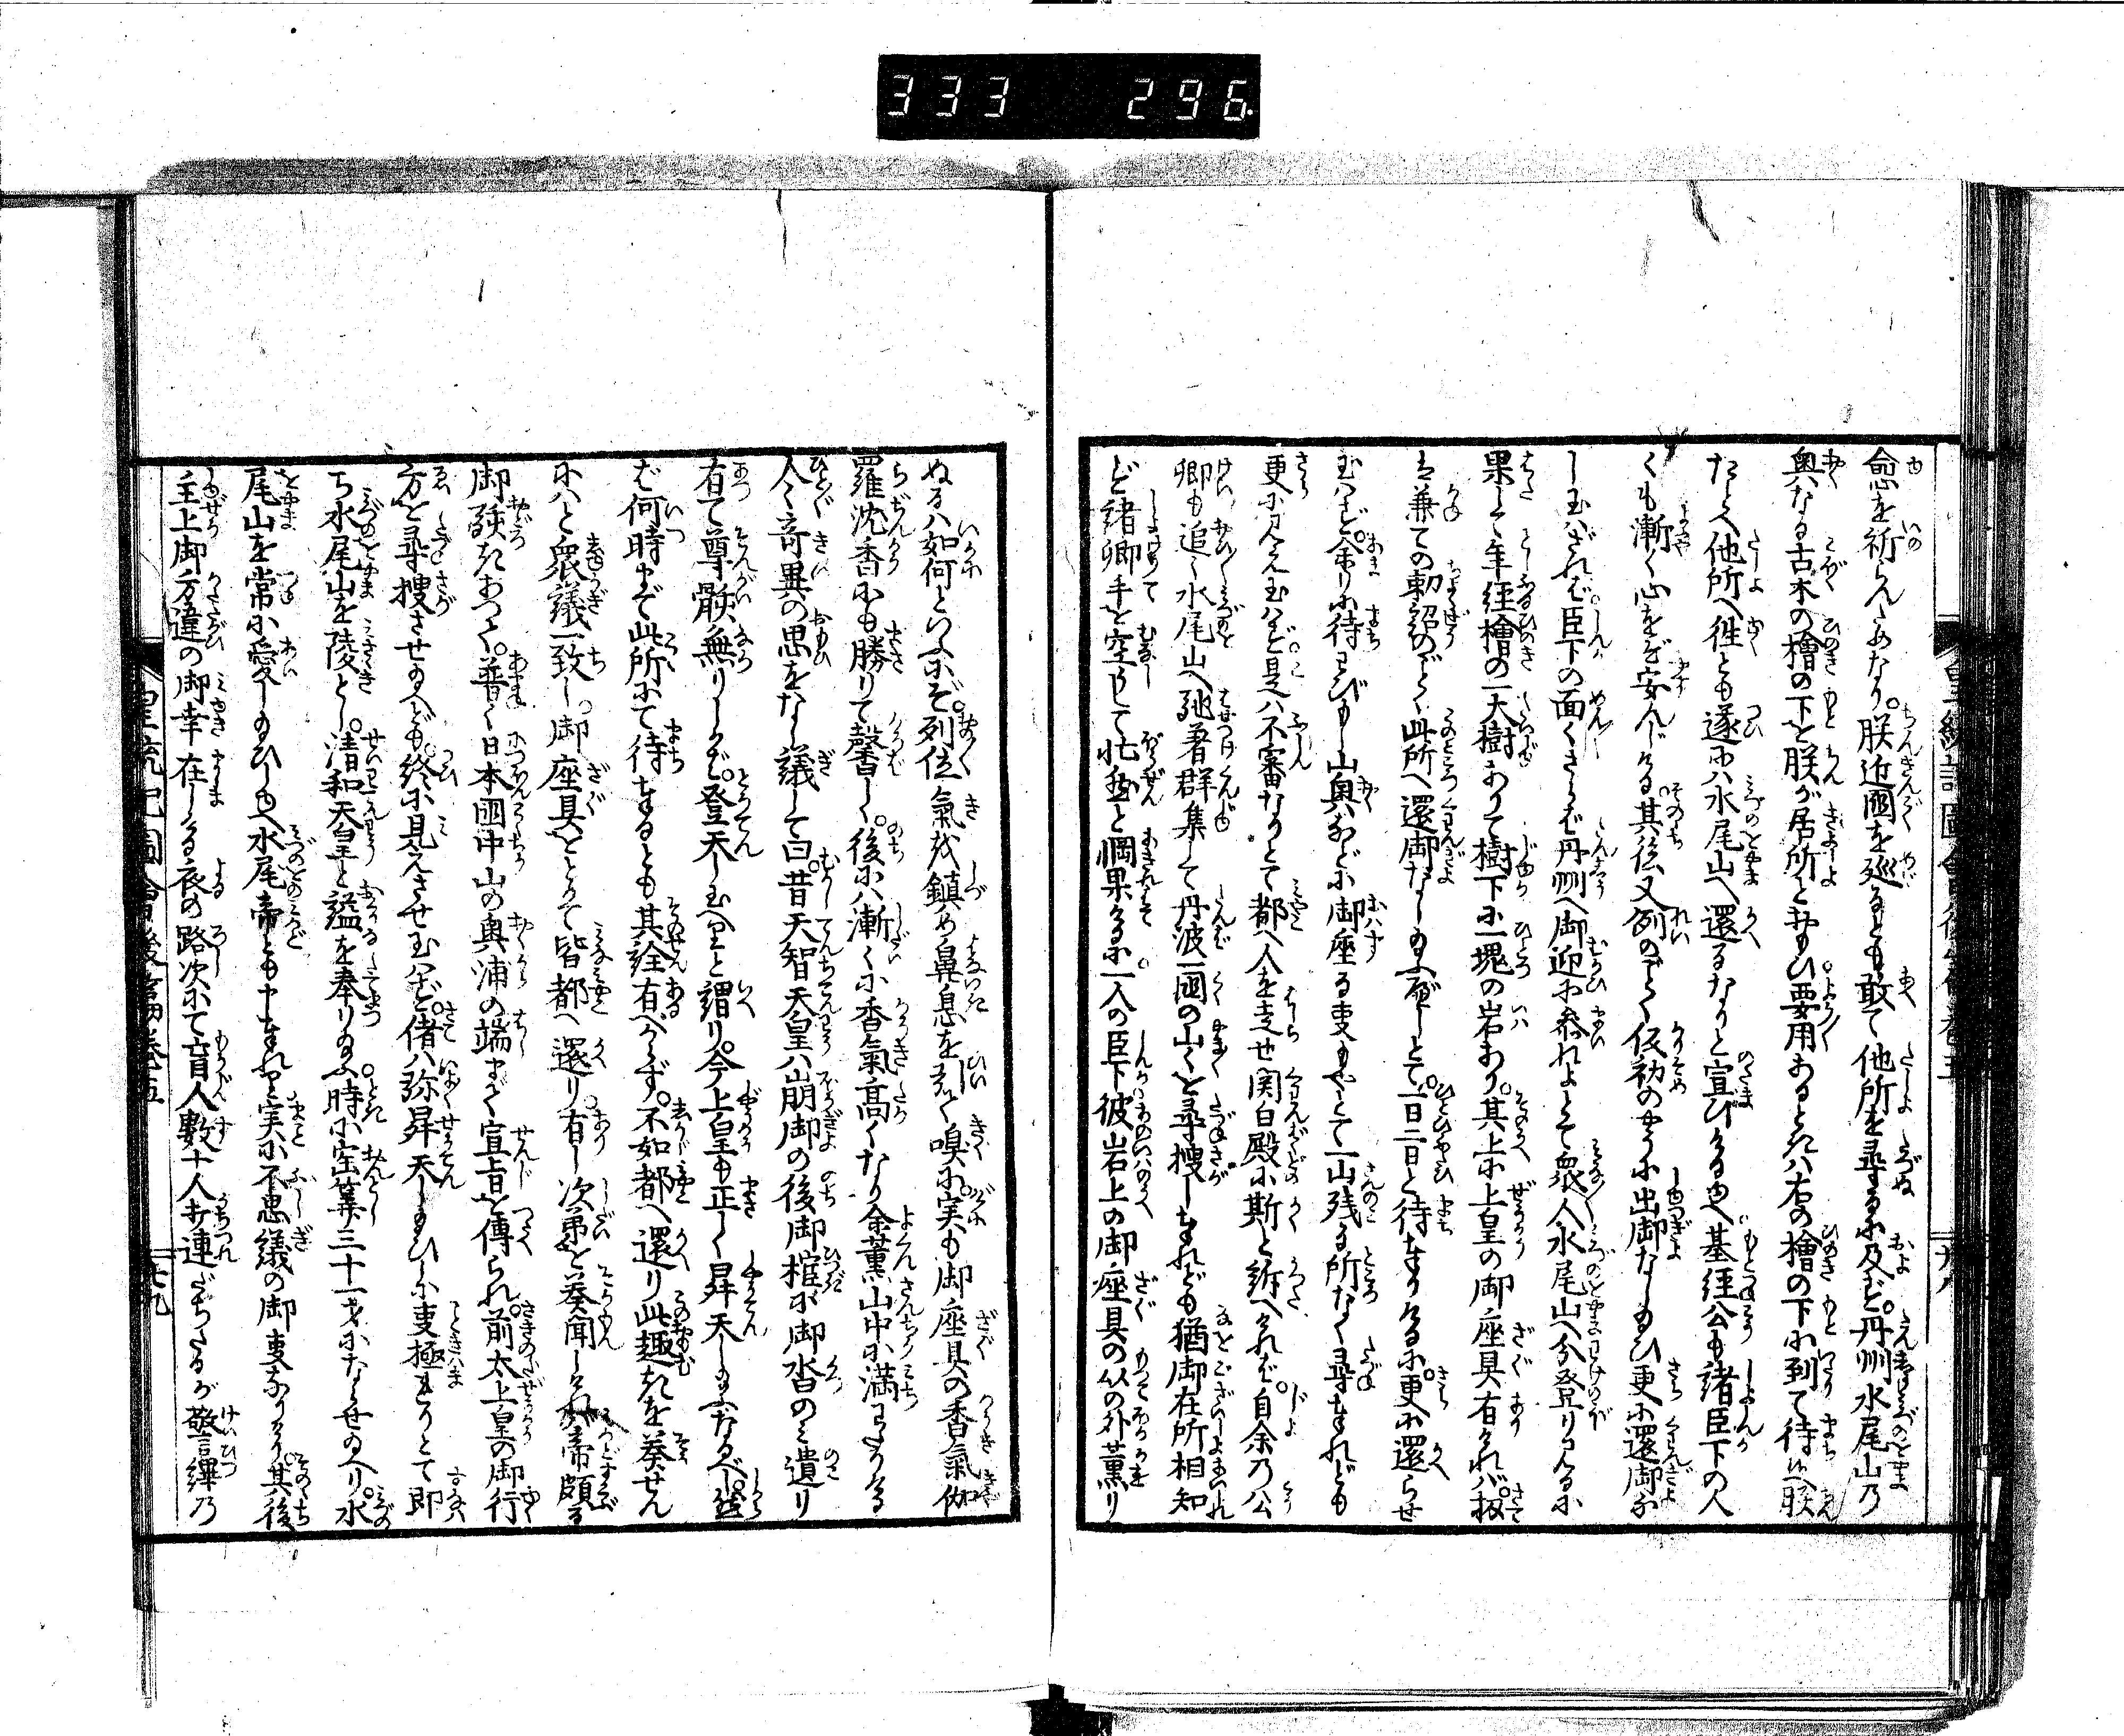 333 296
皇統記圖會後篇巻五
十八
愈を祈らんためなり。朕近國を廻るとも敢て他所を尋るに及ばず。丹州水尾山の
奥なる古木の檜の下を朕が居所とおもひ要用あるときハ右の檜の下に到て待べし朕
たとへ他所へ徃とも遂にハ水尾山へ還るなりと宣ひける也基経公も諸臣下の人
くも漸く心をぞ安んじける其後又例のごとく仮初のやうに出御なし給ひ更に還御な
し玉ハざれバ臣下の面くさらバ丹州へ御迎に参れよとて衆人水尾山へ分登り見るに
果して年経檜の一大樹ありて樹下に一塊の岩あり。其上に上皇の御座具有けれバ扨
ハ兼ての勅詔のごとく此所へ還御なし給ふべしとて。一日二日と待奉りけるに更に還らせ
玉ハず。余りに待わびもし山奥などに御座る事もやとて一山残る所なく尋奉れども
更に見え玉ハず是ハ不審なりとて都へ人を走せ関白殿に斯と訴へけれバ。自余乃公
卿も追く水尾山へ馳着群集して丹波一國の山くを尋捜し奉れども猶御在所相知
ど諸卿手を空しして忙然と惘果けるに一人の臣下彼岩上の御座具の以の外薫り
ぬるハ如何といふにぞ。列位氣を鎮め鼻息を引て嗅に実も御座具の香氣伽
羅沈香にも勝りて馨しく。後にハ漸くに香氣高くなり余薫山中に満わたりける
人く奇異の思をなし議して曰。昔天智天皇ハ崩御の後御棺に御沓のミ遺り
有て尊骸ハ無りしかバ。登天し玉へりと謂り。今上皇も正しく昇天し給ふなるべし。然
ば何時まで此所にて待奉るとも其詮有べからず。不如都へ還り此趣きを奏せん
にハと衆議一致し御座具をとりて皆都へ還り有し次第を奏聞しけれバ帝頗る
御駭きあつて。普く日本國中山の奥浦の端まで宣旨を傳られ前太上皇の御行
方を尋捜させ給へども。終に見えさせ玉ハず。偖ハ弥昇天し給ひしに事極まりとて即
ち水尾山を陵とし。清和天皇と謚を奉り給ふ時に宝算三十一才にならせ給へり。水
尾山を常に愛し給ひし也水尾帝とも申奉れり実に不思議の御事なりけり。其後
主上御方違の御幸在しける夜の路次にて盲人數十人打連だちたるが警蹕乃
皇統記圖會後篇巻五
十九